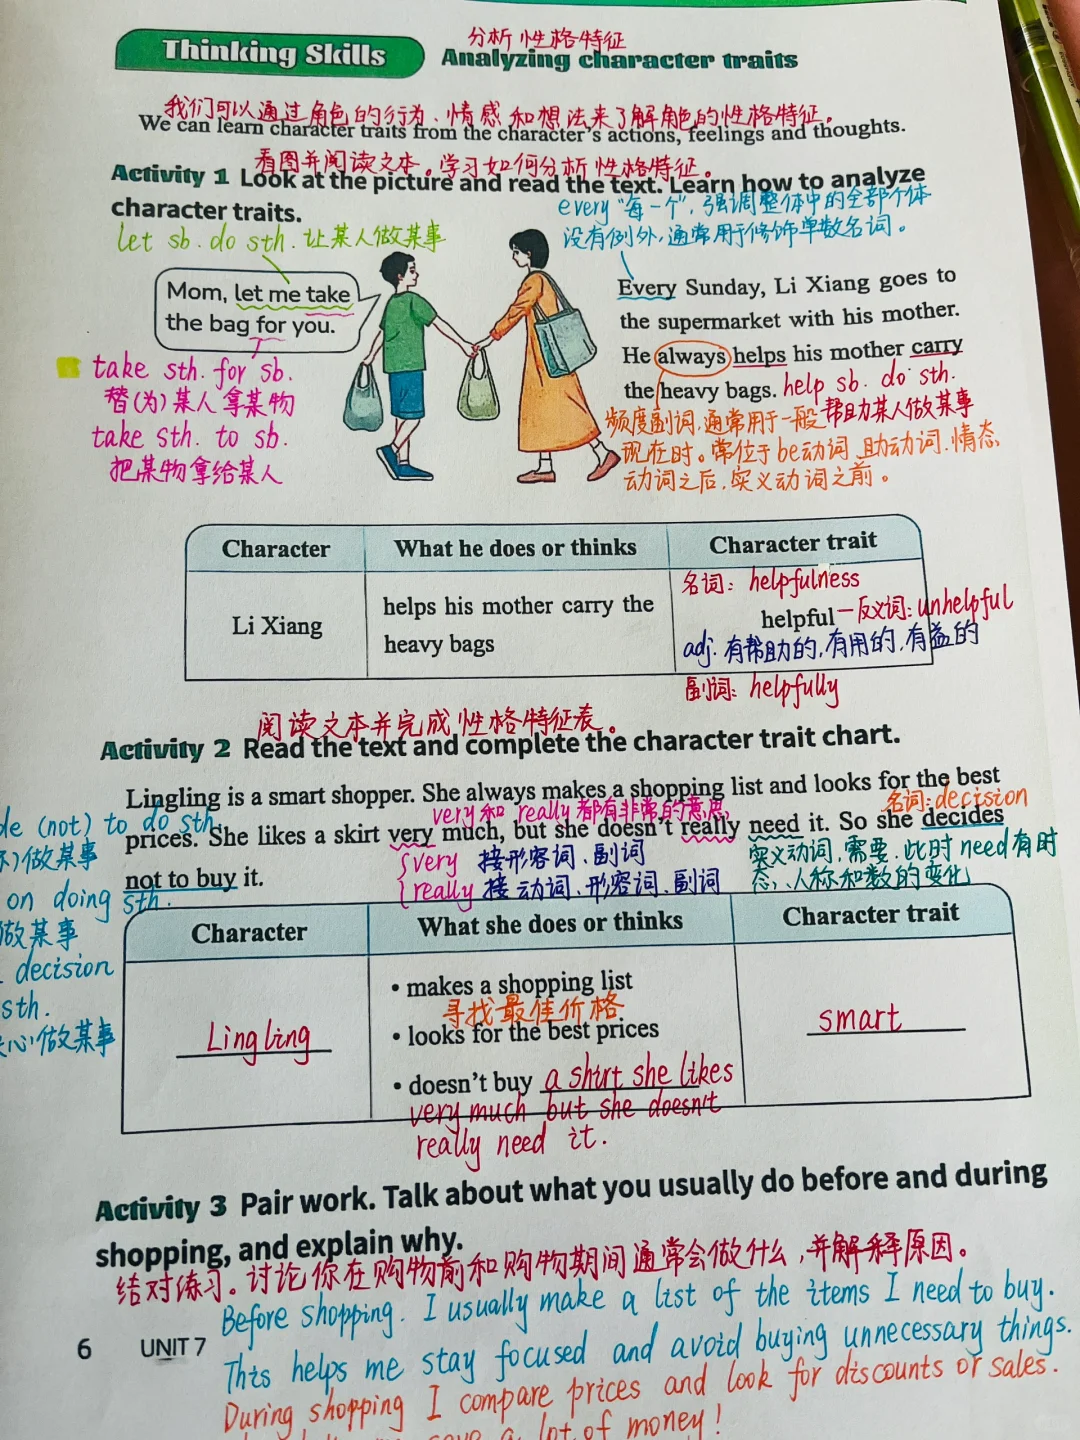 分析性格特征
Thinking Skills Analyzing character traits
我们可以通过角色的行为、情感和想法来了解角色的性格特征。
We can learn character traits from the character's actions, feelings and thoughts.
看图并阅读文本。学习如何分析性格特征。
Activity 1 Look at the picture and read the text. Learn how to analyze
character traits.
every "每一个", 强调整体中的全部个体
没有例外, 通常用于修饰单数名词。
let sb. do sth. 让某人做某事
Mom, let me take
the bag for you.
take sth. for sb.
替(为)某人拿某物
take sth. to sb.
把某物拿给某人
Every Sunday, Li Xiang goes to
the supermarket with his mother.
He always helps his mother carry
the heavy bags. help sb. do sth.
帮助某人做某事
频度副词, 通常用于一般
现在时。常位于be动词、助动词、情态
动词之后, 实义动词之前。
Character What he does or thinks Character trait
名词: helpfulness
Li Xiang
helps his mother carry the
heavy bags
helpful—反义词: unhelpful
adj. 有帮助的, 有用的, 有益的
副词: helpfully
阅读文本并完成性格特征表。
Activity 2 Read the text and complete the character trait chart.
Lingling is a smart shopper. She always makes a shopping list and looks for the best
very和really都有非常的意思,
名词: decision
prices. She likes a skirt very much, but she doesn't really need it. So she decides
very 接形容词、副词
really 接动词、形容词、副词
实义动词, 需要, 此时need有时
态、人称和数的变化
not to buy it.
de (not) to do sth
)做某事
on doing sth.
做某事
decision
sth.
心做某事
Character What she does or thinks Character trait
Lingling
• makes a shopping list
寻找最佳价格
• looks for the best prices
• doesn't buy a shirt she likes
very much but she doesn't
really need it.
smart
Activity 3 Pair work. Talk about what you usually do before and during
shopping, and explain why.
结对练习。讨论你在购物前和购物期间通常会做什么, 并解释原因。
Before shopping. I usually make a list of the items I need to buy.
This helps me stay focused and avoid buying unnecessary things.
During shopping I compare prices and look for discounts or sales.
save a lot of money!
6 UNIT 7